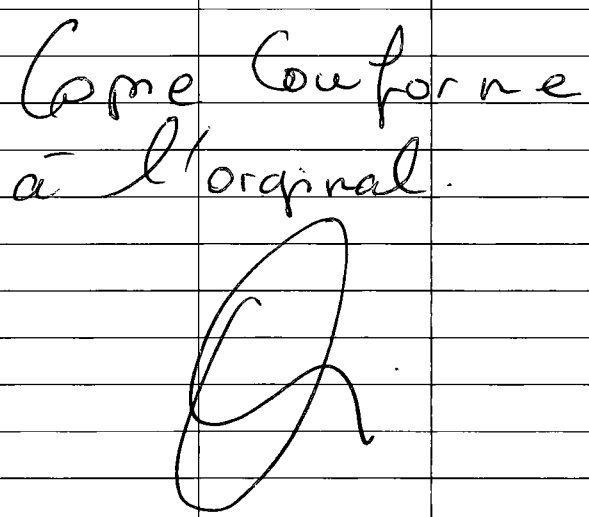 Copie Conforme
à l'original.